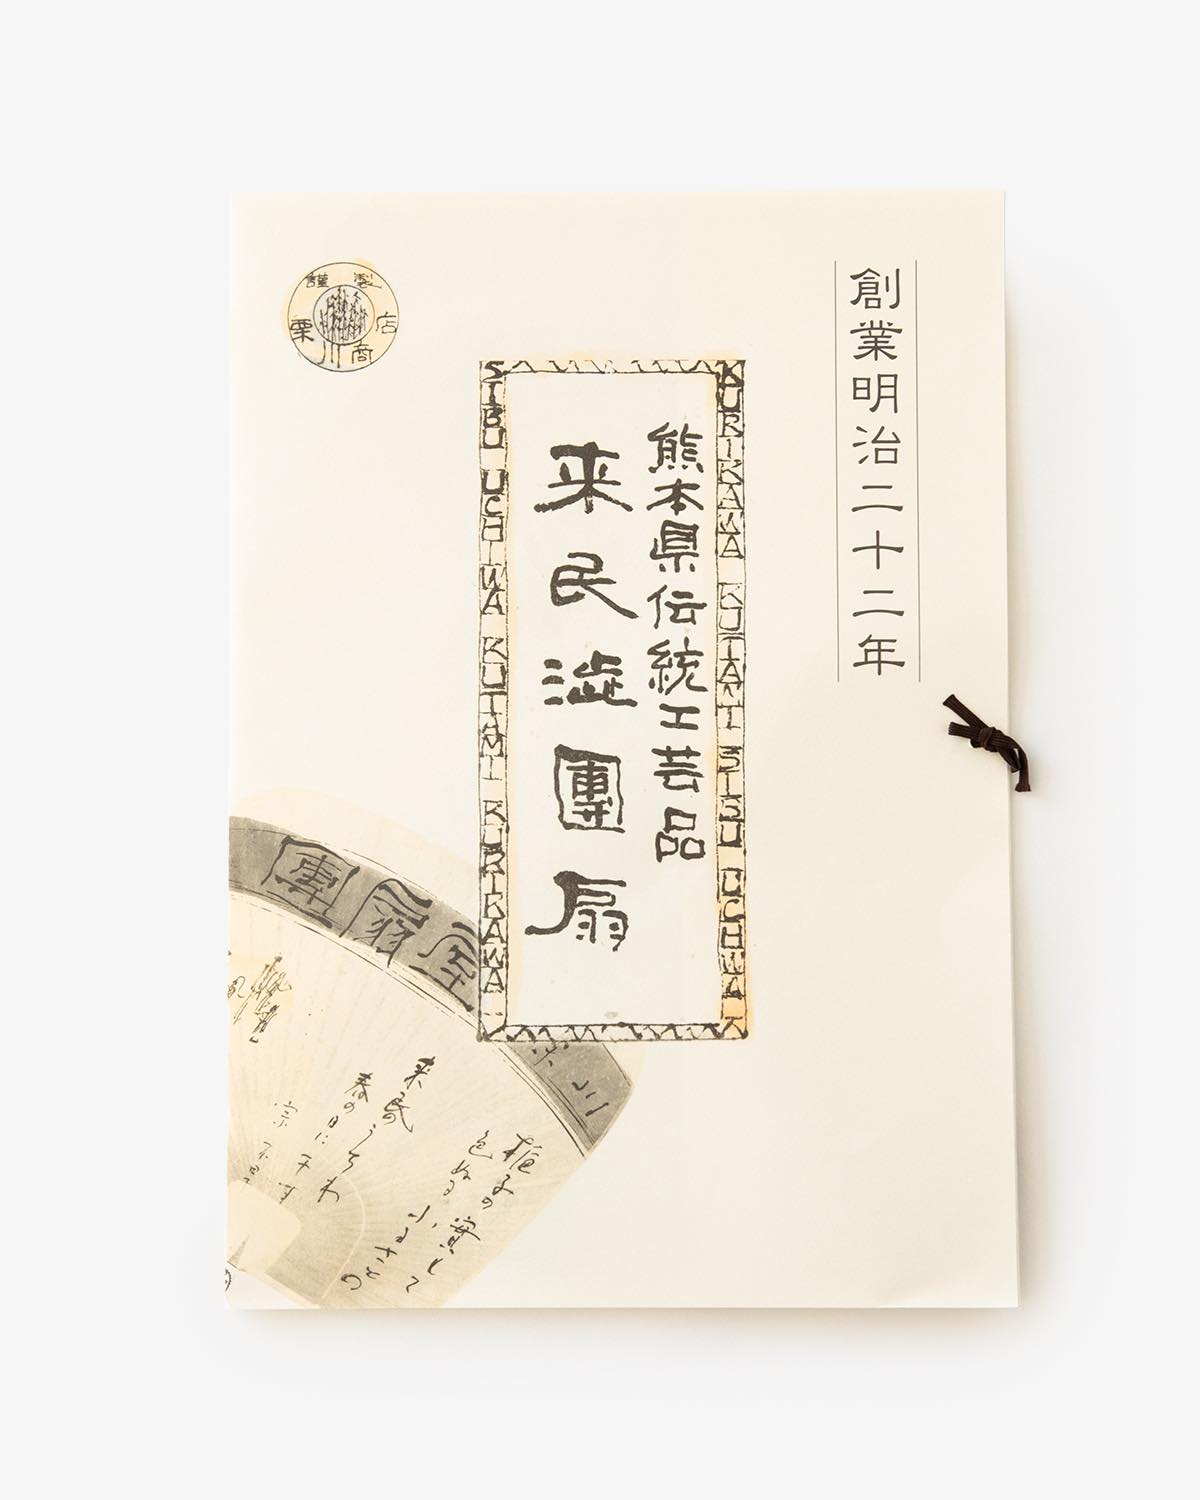 創業明治二十二年
熊本県伝統工芸品
来民渋團扇
謹製
栗川商店
KURIKAWA KUTAMI SIBU UCHIWA K
SIBU UCHIWA KUTAMI KURIKAWA
團扇屋
栗川
梔子の實して
色ぬる小るさとの
来民うちわ
春の日に干す
宗不旱